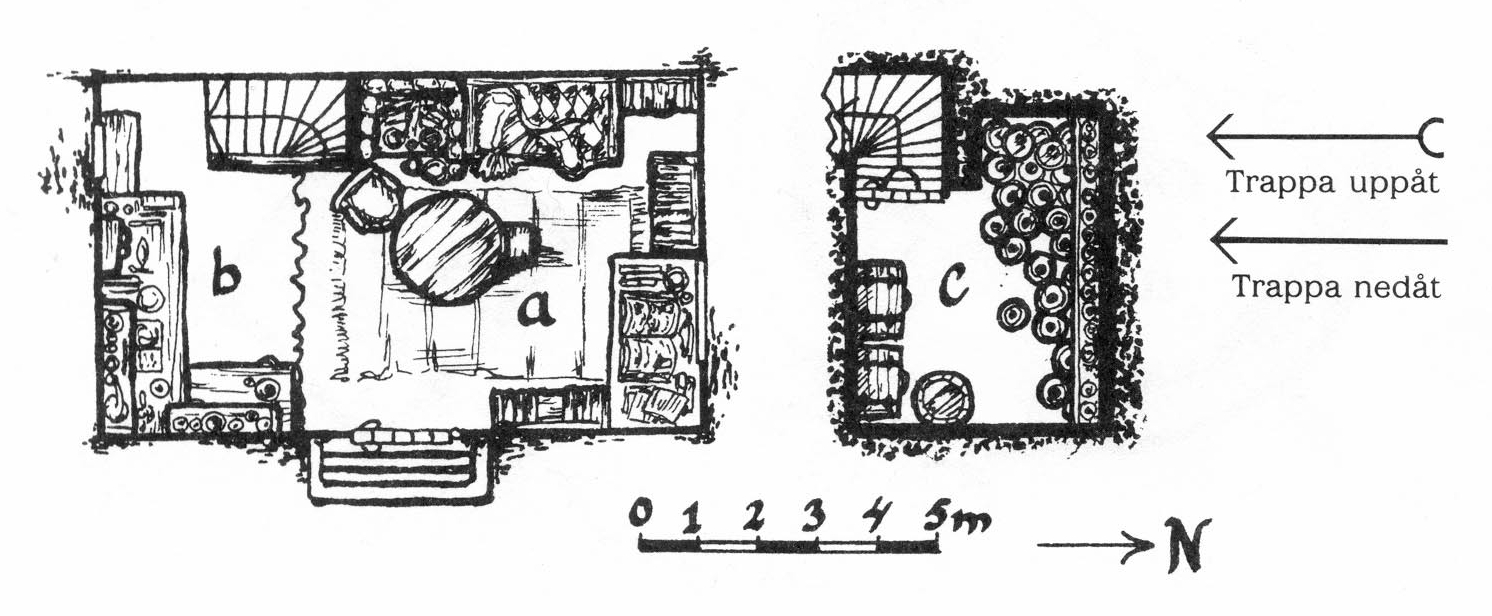 b
a
c
Trappa uppåt
Trappa nedåt
0 1 2 3 4 5m
N